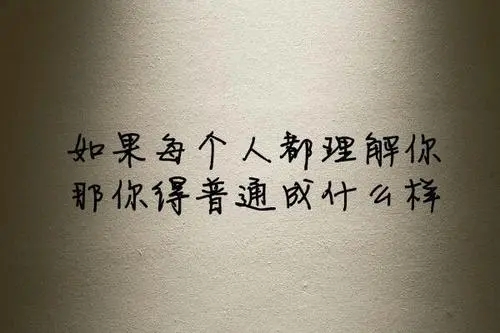 如果每个人都理解你
那你得普通成什么样